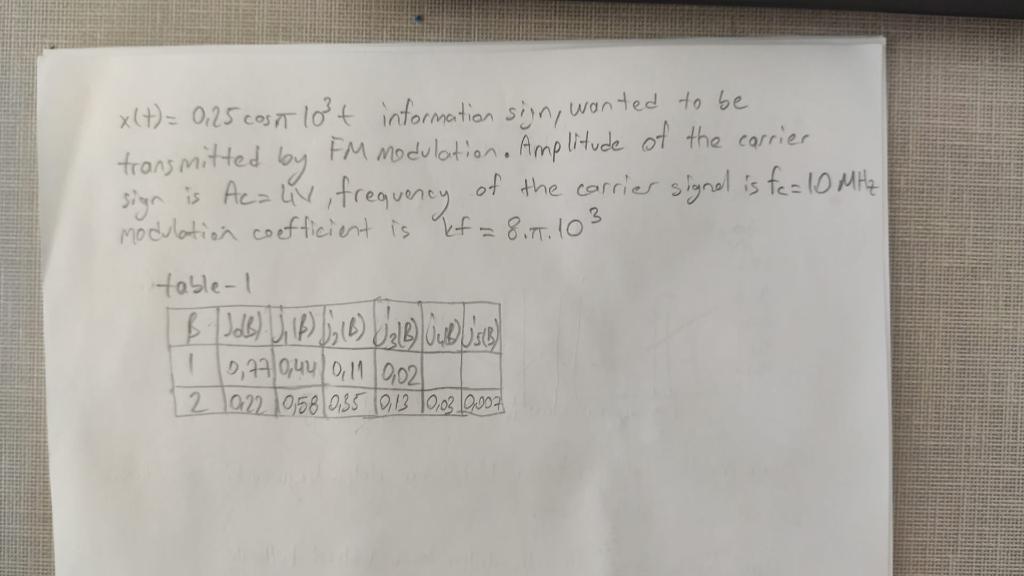 x(t) = 0,25 cosπ 10³t information sign, wanted to be
transmitted by FM modulation. Amplitude of the carrier
sign is Ac = 4V, frequency of the carrier signal is fc = 10 MHz
modulation coefficient is kf = 8.π.10³
table-1
β J₀(β) j₁(β) j₂(β) j₃(β) j₄(β) j₅(β)
1 0,77 0,44 0,11 0,02
2 0,22 0,58 0,35 0,13 0,03 0,007